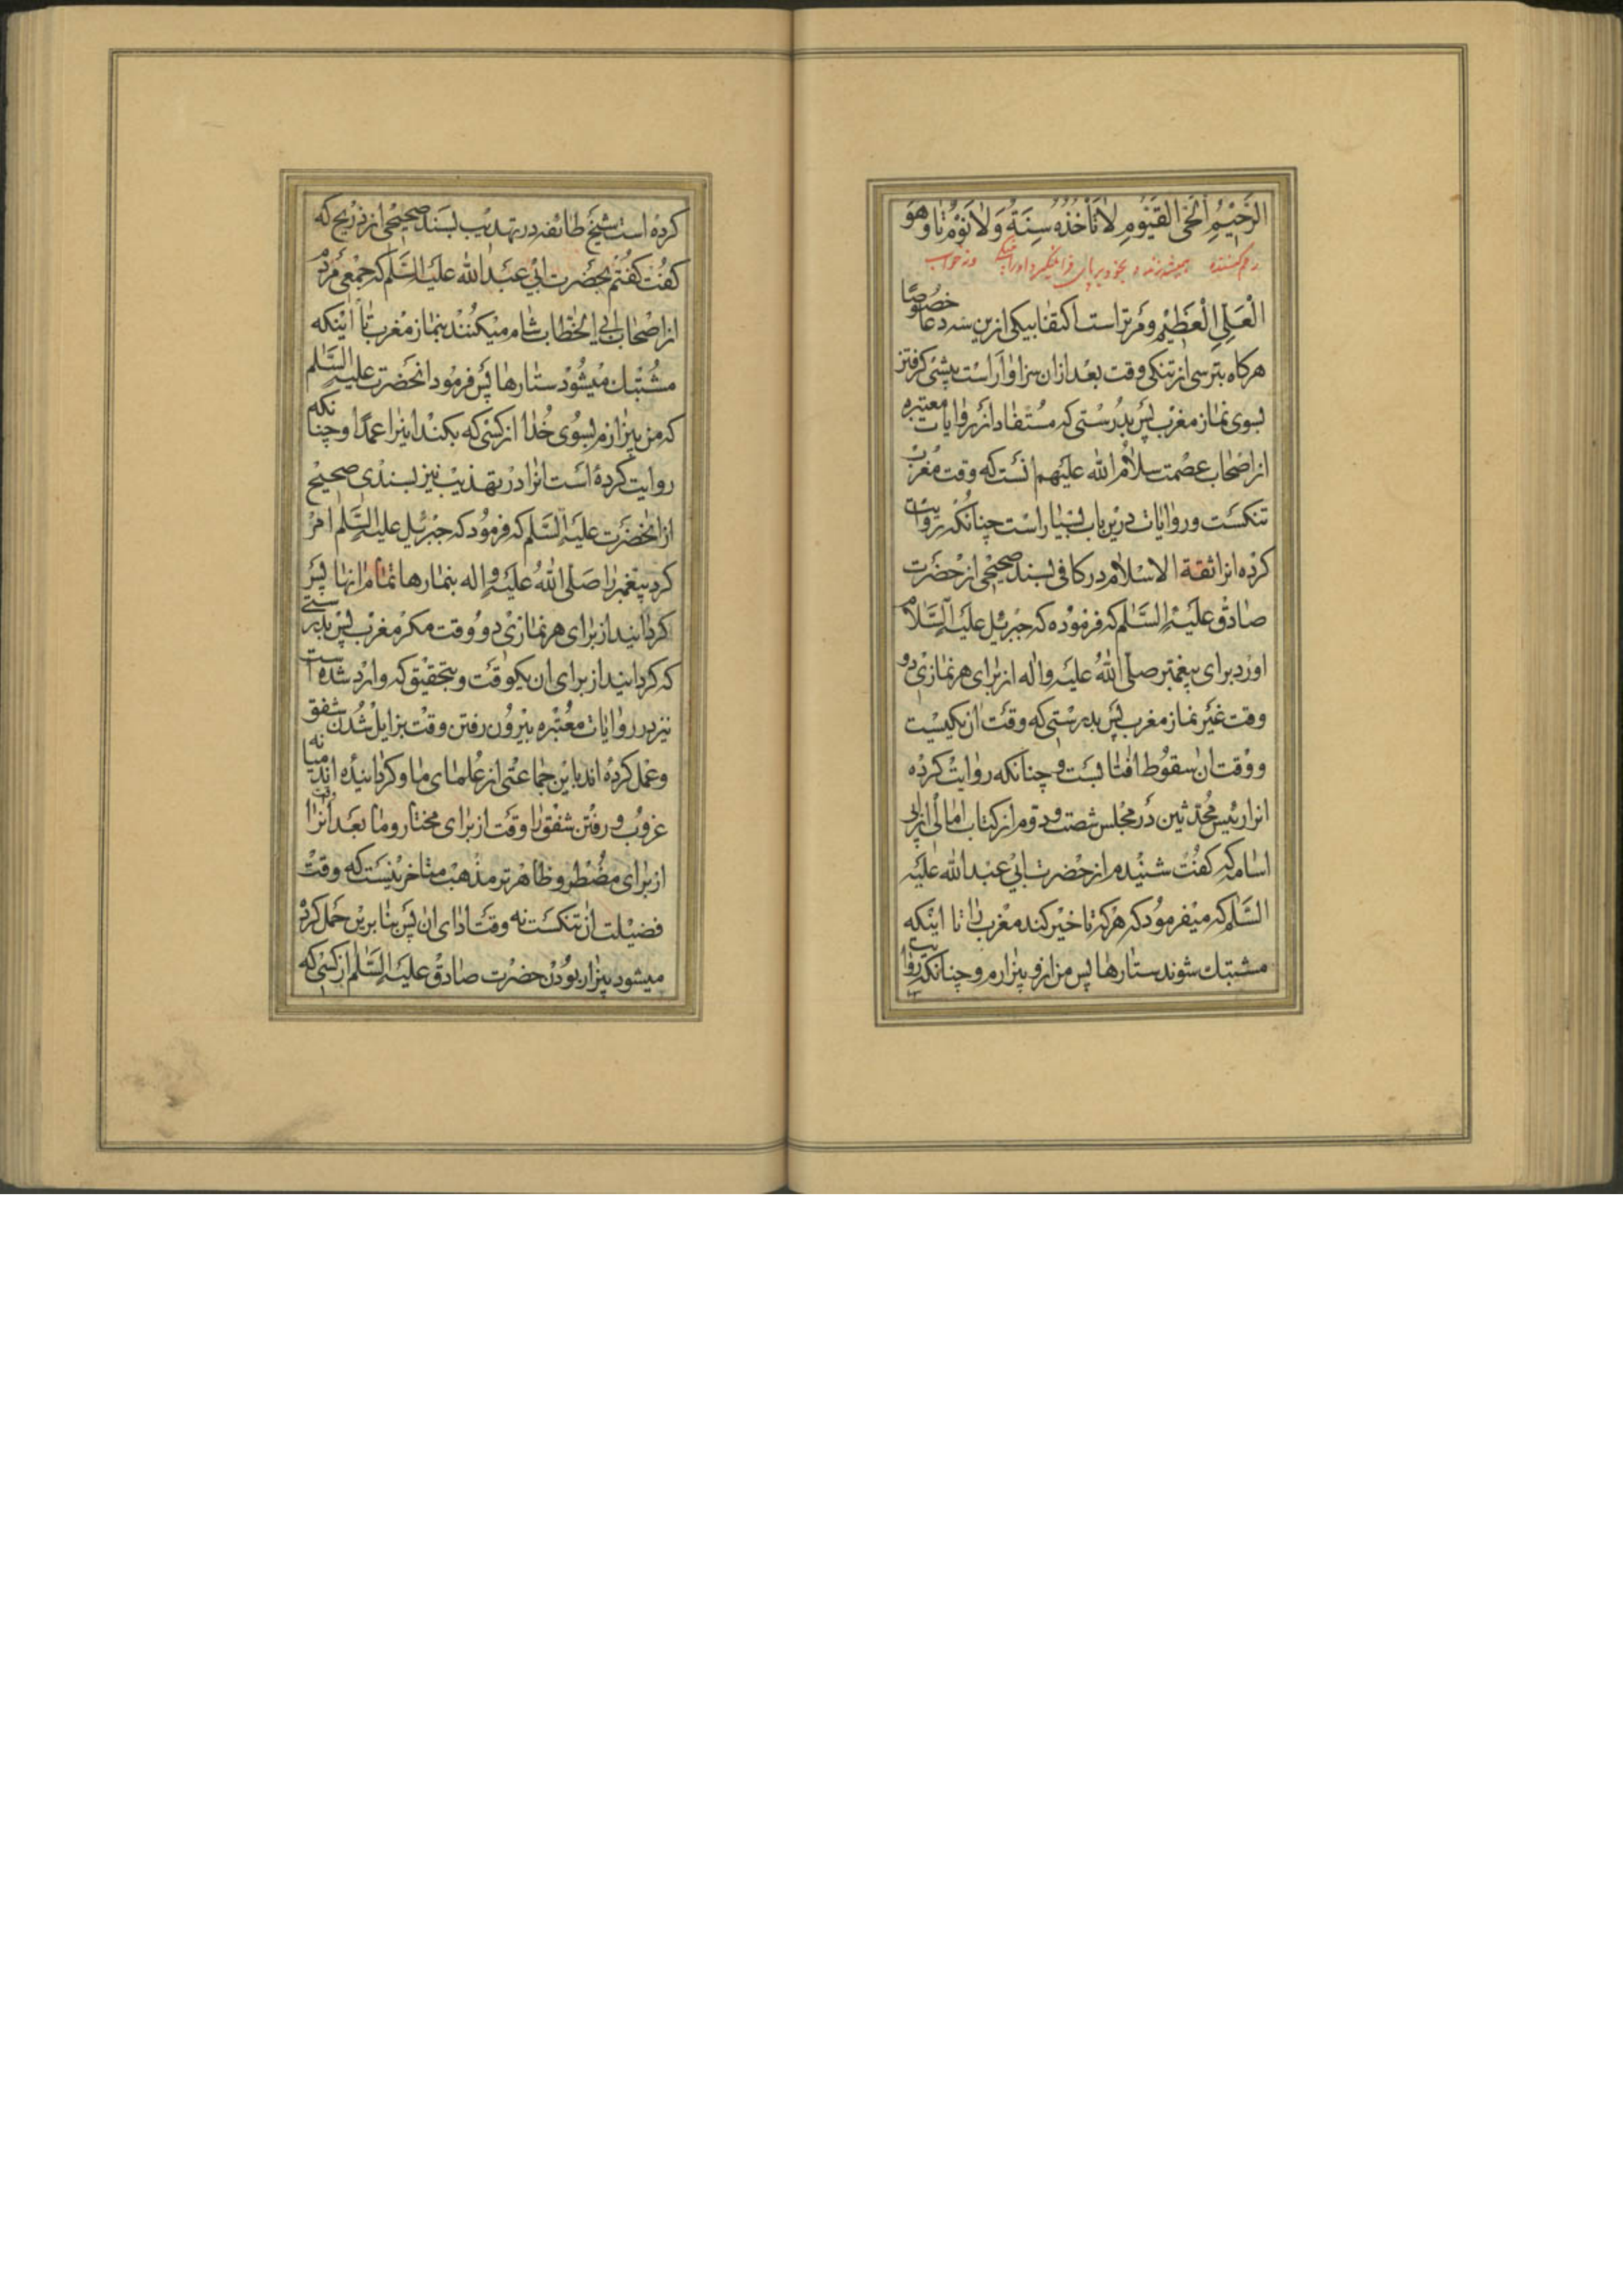 الرَّحِیْمُ الْحَیُّ الْقَیُّوْمُ لَا تَأْخُذُهُ سِنَةٌ وَلَا نَوْمٌ تا وَهُوَ
رحم کننده همیشه زنده و بخود برپای فرا نمیگیرد او را پینکی و نه خواب
الْعَلِیُّ الْعَظِیْمُ و مر تراست اکتفا بیکی ازین سه دعا خصُوصًا
هرکاه بترسی از تنکی وقت بعد ازان سزاوار است پیشی کرفتن
بسوی نماز مغرب پس بدرستی که مستفاد از روایات معتبره
از اصحاب عصمت سلام الله علیهم انست که وقت مغرب
تنکست و روایات درین باب بسیار است چنانکه روایت
کرده انرا ثقة الاسلام در کافی بسند صحیحی از حضرت
صادق علیه السَّلم که فرموده که جبرئیل علیه السَّلام
اورد برای پیغمبر صلّی اللهُ علیه واله از برای هر نمازی دو
وقت غیر نماز مغرب پس بدرستی که وقت ان یکیست
و وقت ان سقوط افتابست و چنانکه روایت کرده
انرا رئیس محدثین در مجلس شصت و دوم از کتاب امالی از ابی
اسامه که کفت شنیدم از حضرت ابی عبد الله علیه
السَّلم که میفرمود که هرکه تاخیر کند مغرب را تا اینکه
مشتبك شوند ستارها پس من ازو بیزارم و چنانکه روایت
کرده است شیخ طائفه در تهذیب بسند صحیحی از ذریح که
کفت کفتم بحضرت ابی عبد الله علیه السَّلم که جمعی مردم
از اصحاب ابی الخطاب شام میکنند بنماز مغرب تا اینکه
مشتبك میشود ستارها پس فرمود انحضرت علیه السَّلم
که من بیزارم بسوی خدا از کسی که بکند اینرا عمدًا و چنانکه
روایت کرده است انرا در تهذیب نیز بسندی صحیح
از انحضرت علیه السَّلم که فرمود که جبرئیل علیه السَّلم امر
کرد پیغمبر را صَلّی اللهُ علیه واله بنمازها تمام انها پس
کردانید از برای هر نمازی دو وقت مکر مغرب پس بدرستی
که کردانید از برای ان یکوقت و بتحقیق که وارد شده است
نیز در روایات معتبره بیرون رفتن وقت بزایل شدن شفق
و عمل کرده اند باین جماعتی از علمای ما و کردانیده اند میانه
غروب و رفتن شفق را وقت از برای مختار و ما بعد انرا وقت
از برای مضطر و ظاهرتر مذهب متاخرینست که وقت
فضیلت ان تنکست نه وقت ادای ان پس بنا برین حمل کرده
میشود بیزار بودن حضرت صادق علیه السَّلم از کسی که